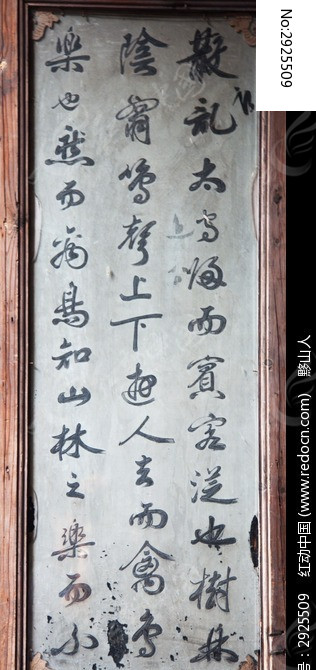 散亂太守歸而賓客從也樹林
陰翳鳴聲上下遊人去而禽鳥
樂也然而禽鳥知山林之樂而不
No:2925509
号：2925509 红动中国 (www.redocn.com) 黟山人